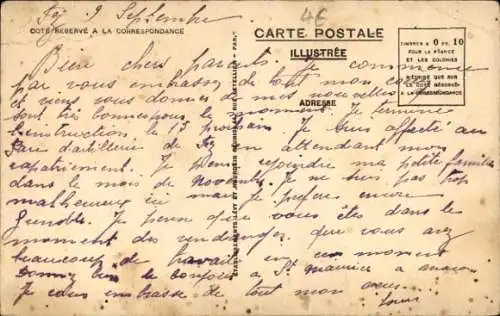 9 Septembre
4€
COTÉ RÉSERVÉ A LA CORRESPONDANCE
CARTE POSTALE
ILLUSTRÉE
ADRESSE
TIMBRES A 0 FR. 10
POUR LA FRANCE
ET LES COLONIES
A LA CORRESPONDANCE
Bien chers parents. Je commence
par vous embrasser de tout mon cœur
et viens vous donner de mes nouvelles
sont très bonnes pour le moment. Je termine
l'instruction le 15 prochain Je suis affecté au
Parc d'artillerie de en attendant mon
rapatriement. Je pense rejoindre ma petite famille
dans le mois de Novembre. Je ne suis pas trop
malheureux ici mais je préfère encore
Grenoble. Je pense que vous êtes dans le
moment des vendanges que vous avez
beaucoup de travail en ce moment
Donnez bien le bonjour à St Maurice à
Je vous embrasse de tout mon cœur
Louis